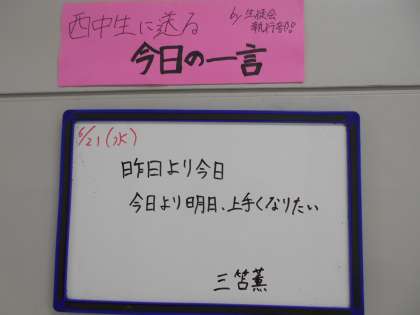 西中生に送る
by 生徒会
執行部!!
今日の一言
6/21(水)
昨日より今日
今日より明日、上手くなりたい
三笘薫